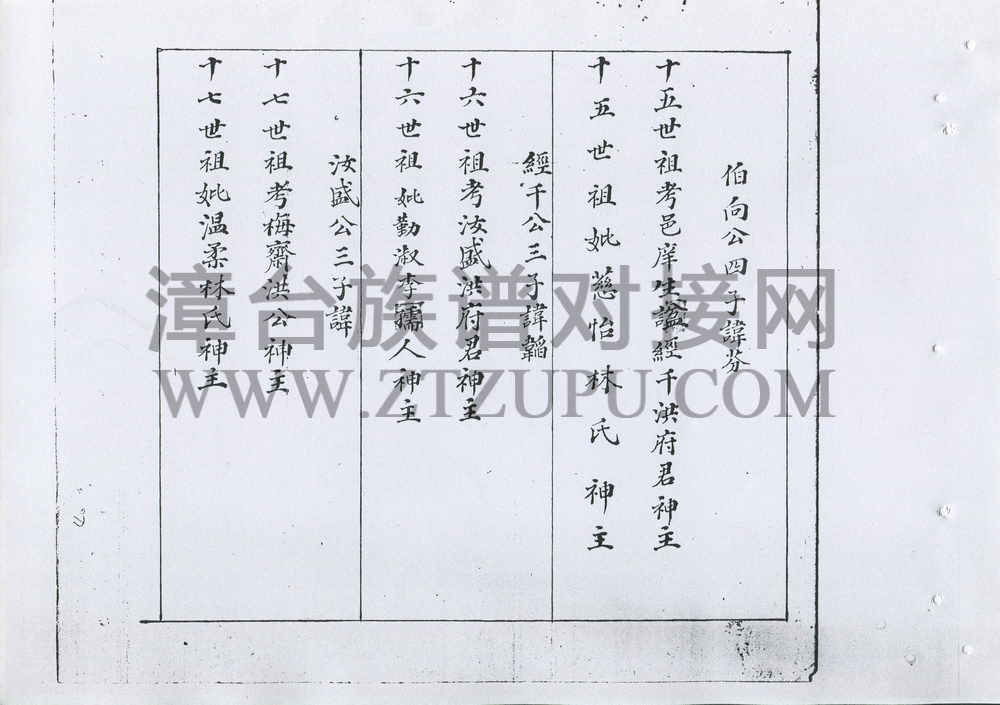 伯向公四子諱芬
十五世祖考邑庠生諡經千洪府君神主
十五世祖妣慈怡林氏神主
經千公三子諱韜
十六世祖考汝盛洪府君神主
十六世祖妣勤淑李孺人神主
汝盛公三子諱
十七世祖考梅齋洪公神主
十七世祖妣温柔林氏神主
漳台族谱对接网
WWW.ZTZUPU.COM